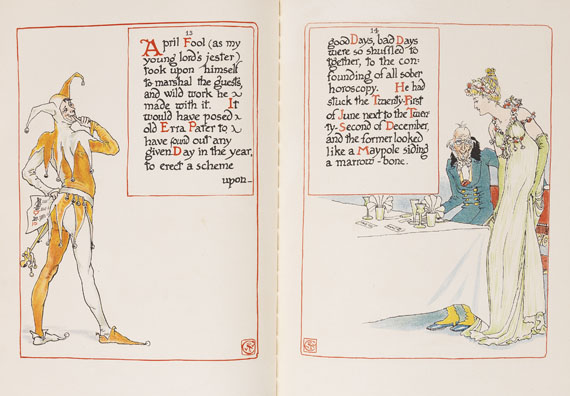 13
April Fool (as my
young lord's jester)
took upon himself
to marshal the guests,
and wild work he
made with it. It
would have posed
old Erra Pater to
have found out any
given Day in the year,
to erect a scheme
upon-
14
good Days, bad Days
were so shuffled to
gether, to the con-
founding of all sober
horoscopy. He had
stuck the Twenty-First
of June next to the Twen-
ty-Second of December,
and the former looked
like a Maypole siding
a marrow-bone.